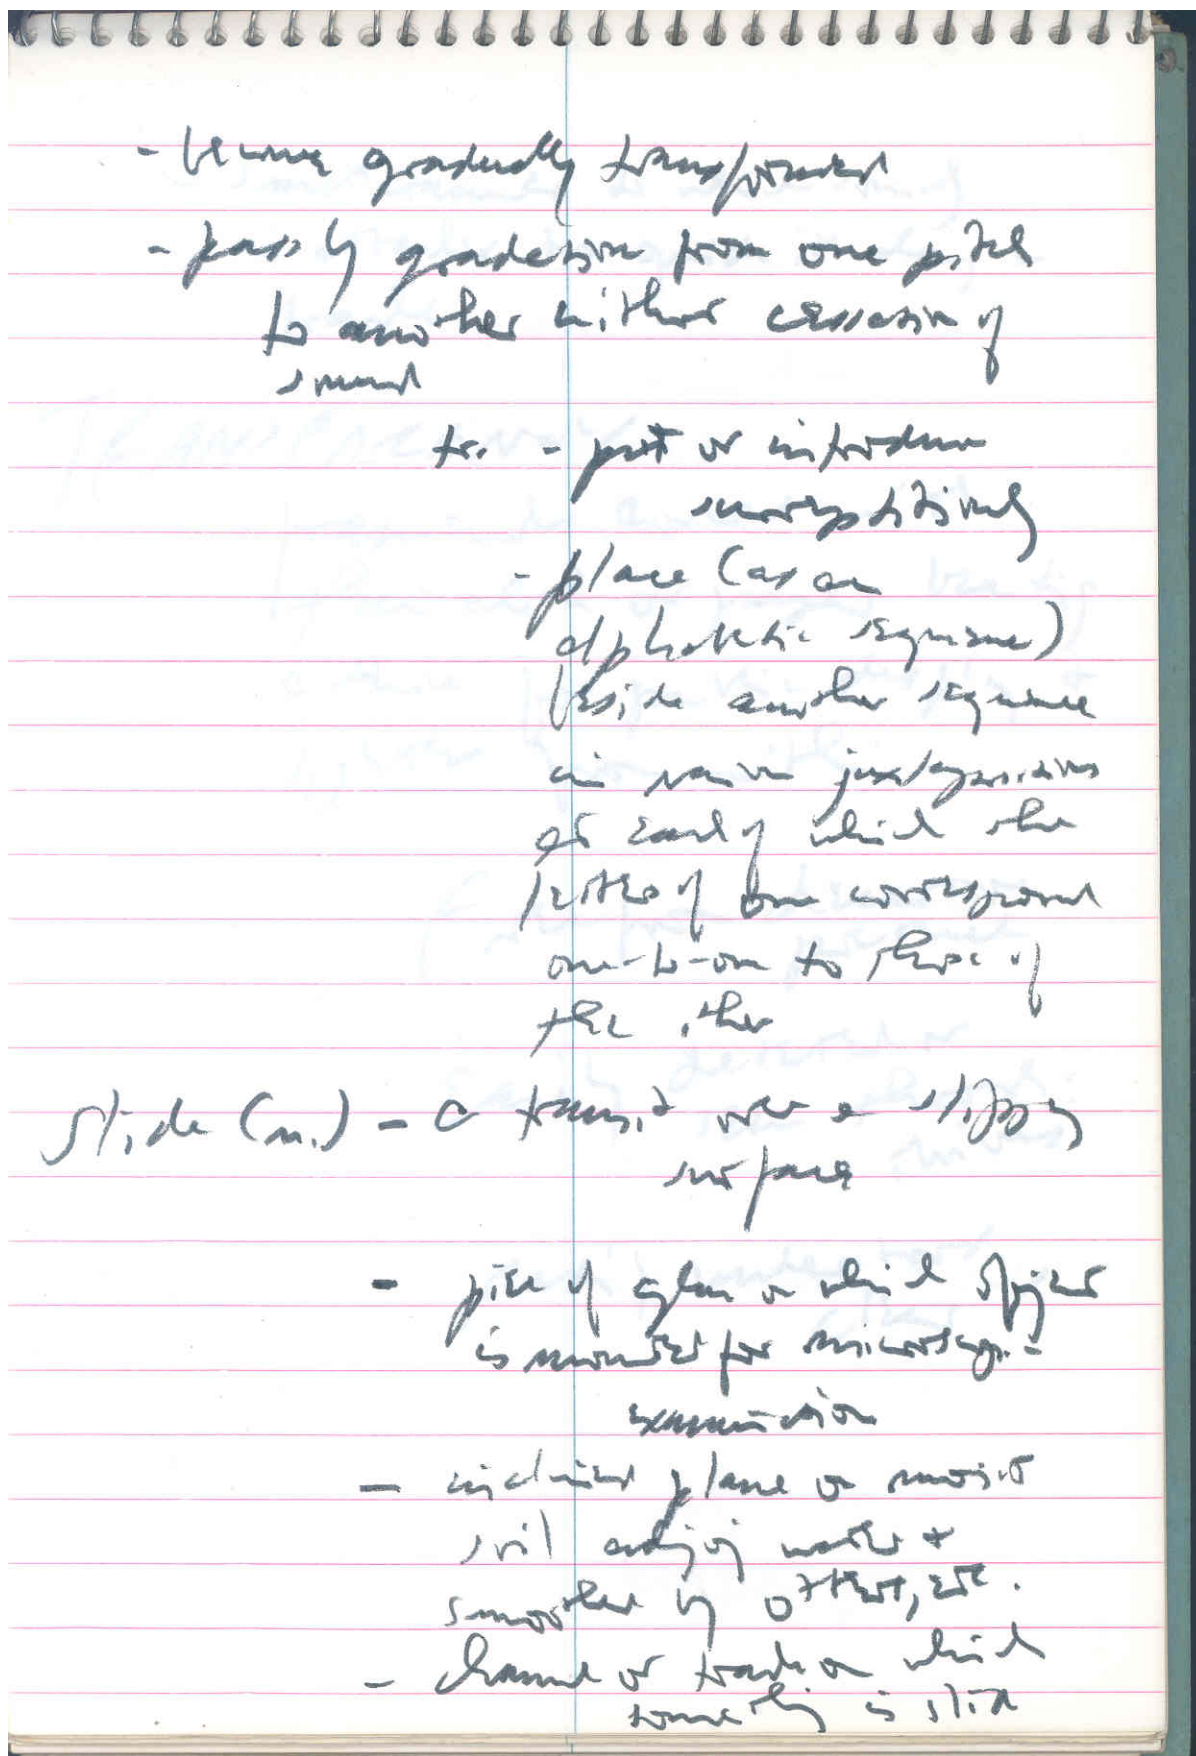 - become gradually transformed
- pass by gradation from one pitch
to another without cessation of
sound
tr. - put or introduce
surreptitiously
- place (as an
alphabetic sequence)
beside another sequence
in various juxtapositions
at each of which the
letters of one correspond
one-to-one to those of
the other
slide (n.) - a transit over a slippy
surface
- piece of glass on which object
is mounted for microscopic
examination
- inclined plane on moist
soil adjoing water &
smoothed by otters, etc.
- channel or track on which
something is slid